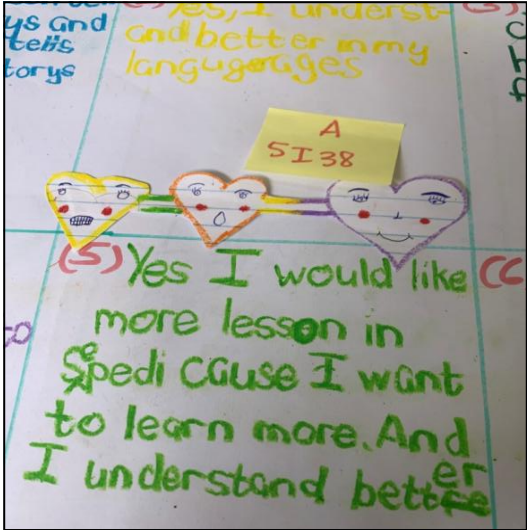 ys and
tells
torys
Yes, I underst-
and better in my
languages
(3)
A
5I38
(5) Yes I would like
more lesson in
Sepedi cause I want
to learn more. And
I understand better